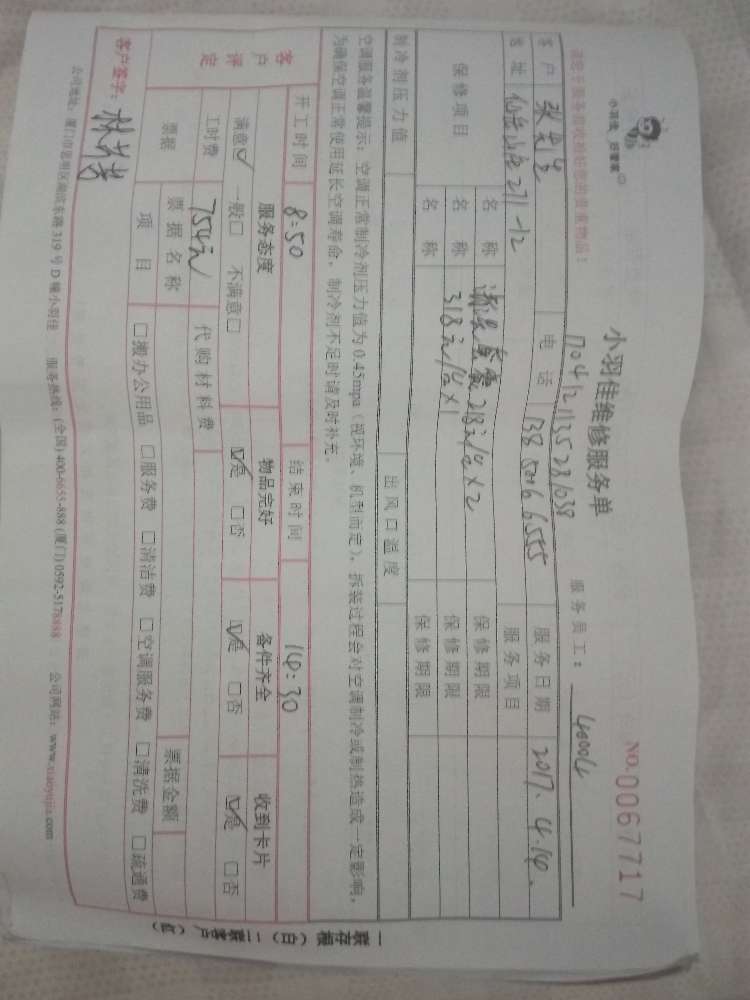 小羽佳 好管家
小羽佳维修服务单
NO.0067717
请您于服务前收拾好您的贵重物品!
1704121135281038
服务员工: 40004
客户 电话 13850066555 服务日期 2017.4.14.
地址 仙岳山庄271-12 服务项目
保修项目 名称 218元/台×2 保修期限
名称 318元/台×1 保修期限
名称 保修期限
制冷剂压力值 出风口温度
空调服务温馨提示:空调正常制冷剂压力值为0.45mpa(视环境、机型而定),拆装过程会对空调制冷或制热造成一定影响,
为确保空调正常使用延长空调寿命,制冷剂不足时请及时补充。
开工时间 8:50 结束时间 14:30
客户评定 服务态度 物品完好 备件齐全 收到卡片
满意☑ 一般□ 不满意□ ☑是 □否 ☑是 □否 ☑是 □否
工时费 754元 代购材料费
票据 票据名称 票据金额
项目 □搬办公用品 □服务费 □清洁费 □空调服务费 □清洗费 □疏通费
客户签字:
公司地址:厦门市思明区湖滨东路319号D幢小羽佳 服务热线:(全国)400-6655-888(厦门)0592-5178888 公司网站:www.xiaoyujia.com
一联存根(白)二联客户(红)